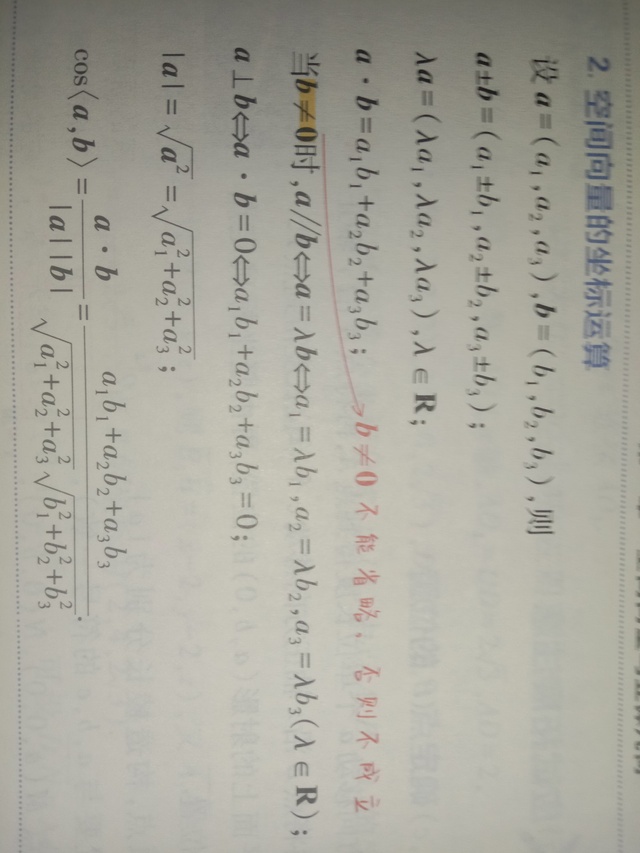 2. 空间向量的坐标运算
设 a=(a₁,a₂,a₃),b=(b₁,b₂,b₃),则
a±b=(a₁±b₁,a₂±b₂,a₃±b₃);
λa=(λa₁,λa₂,λa₃),λ∈R;
a·b=a₁b₁+a₂b₂+a₃b₃;
b≠0 不能省略,否则不成立
当b≠0时,a//b⇔a=λb⇔a₁=λb₁,a₂=λb₂,a₃=λb₃(λ∈R);
a⊥b⇔a·b=0⇔a₁b₁+a₂b₂+a₃b₃=0;
|a|=√a²=√(a₁²+a₂²+a₃²);
cos⟨a,b⟩=a·b/|a||b|=(a₁b₁+a₂b₂+a₃b₃)/(√(a₁²+a₂²+a₃²)√(b₁²+b₂²+b₃²)).